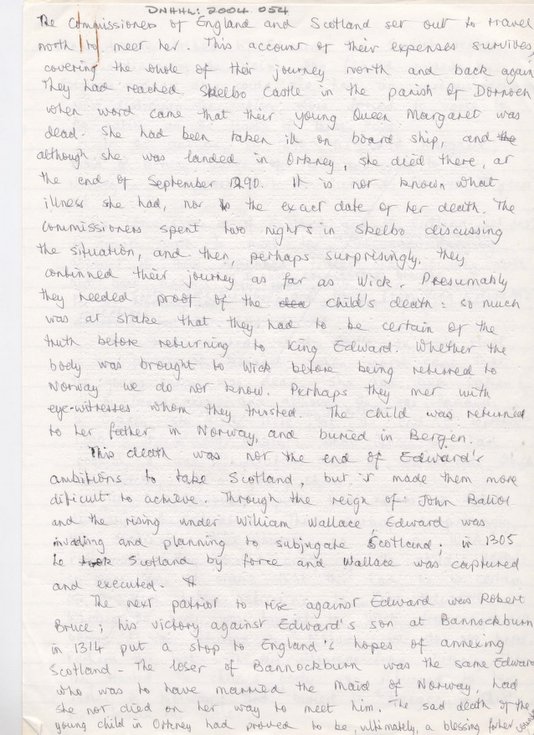 DNHHL: 2004 054
The Commissioners of England and Scotland set out to travel
north to meet her. This account of their expenses survives,
covering the whole of their journey north and back again.
They had reached Skelbo Castle in the parish of Dornoch
when word came that their young Queen Margaret was
dead. She had been taken ill on board ship, and the
although she was landed in Orkney, she died there, at
the end of September 1290. It is not known what
illness she had, nor the exact date of her death. The
Commissioners spent two nights in Skelbo discussing
the situation, and then, perhaps surprisingly, they
continued their journey as far as Wick. Presumably
they needed proof of the dea child's death: so much
was at stake that they had to be certain of the
truth before returning to King Edward. Whether the
body was brought to Wick before being returned to
Norway we do not know. Perhaps they met with
eye-witnesses whom they trusted. The child was returned
to her father in Norway, and buried in Bergen.
This death was not the end of Edward's
ambitions to take Scotland, but it made them more
dificult to achieve. Through the reign of John Baliol
and the rising under William Wallace, Edward was
invading and planning to subjugate Scotland; in 1305
he took Scotland by force and Wallace was captured
and executed.
The next patriot to rise against Edward was Robert
Bruce; his victory against Edward's son at Bannockburn
in 1314 put a stop to England's hopes of annexing
Scotland - The loser of Bannockburn was the same Edward
who was to have married the Maid of Norway, had
she not died on her way to meet him. The sad death of the
young child in Orkney had proved to be, ultimately, a blessing for her